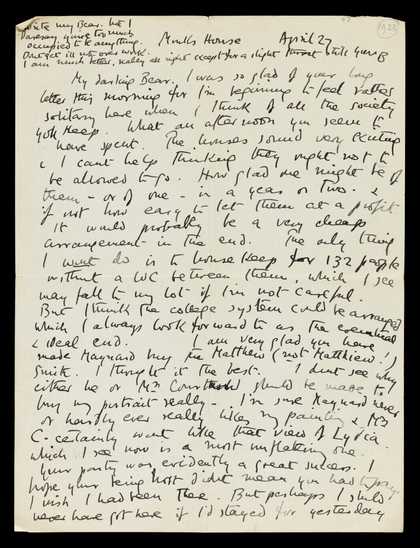 write my Bear. but I
Daresay you're too much
occupied to do anything.
Dont get ill with over work.
I am much better, really all right except for a slight throat still
Monks House April 27
My darling Bear. I was so glad of your long
letter this morning for I'm beginning to feel rather
solitary here when I think of all the society
you keep. What an afternoon you seem to
have spent. The houses sound very exciting
& I cant help thinking they ought not to
be allowed to go. How glad one might be of
them - or of one - in a year or two. &
if not how easy to let them at a profit
It would probably be a very cheap
arrangement in the end. The only thing
I wont do is to house keep for 132 people
without a WC between them, which I see
may fall to my lot if I'm not careful.
But I think the college system could be arranged
which I always look forward to as the eventual
& ideal end. I am very glad you have
made Maynard buy the Matthew (not Matthiew!)
Smith. I thought it the best. I dont see why
either he or Mr should be made to
buy my portrait really - I'm sure Maynard never
or hardly ever really likes my painting & Mr
C. certainly wont like that view of Lydia
which I see now is a most unflattering one.
Your party was evidently a great success. I
hope your being host didnt mean you had to pay.
I wish I had been there. But perhaps I should
never have got here if I'd stayed for yesterday